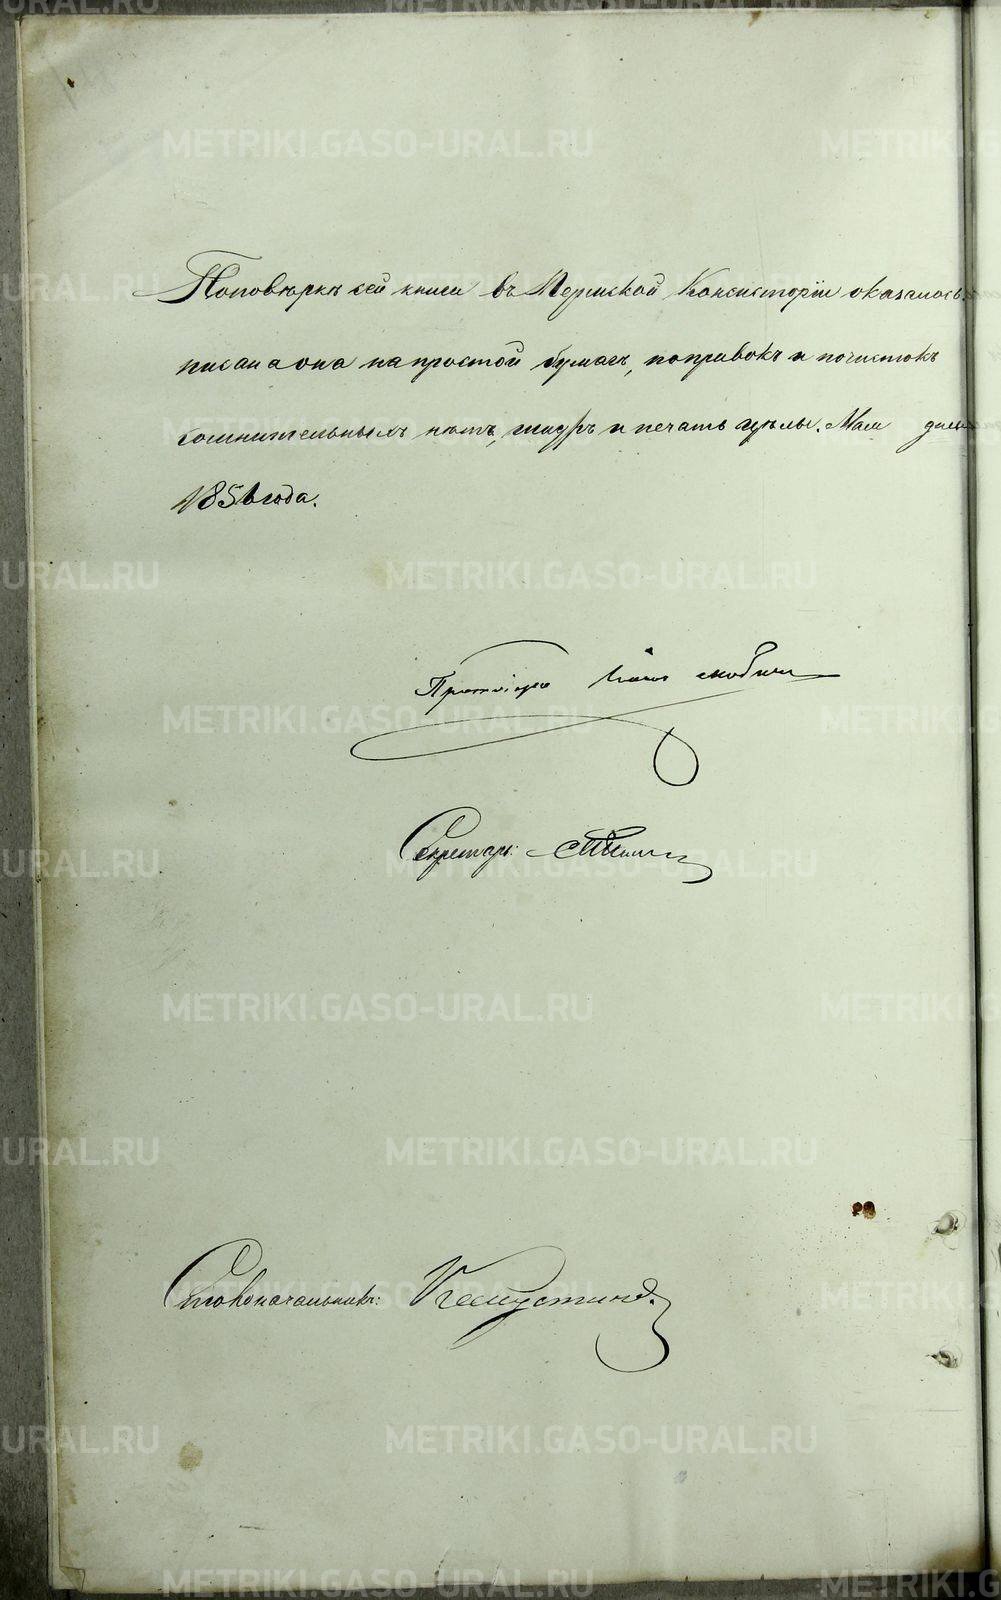 По повѣркѣ сей книги въ Пермской Консисторіи оказалось:
писана она на простой бумагѣ, поправокъ и почистокъ
сомнительныхъ нѣтъ, шнуръ и печать цѣлы. Мая дня
185 года.
Протоіерей
Секретарь:
Столоначальникъ:
METRIKI.GASO-URAL.RU